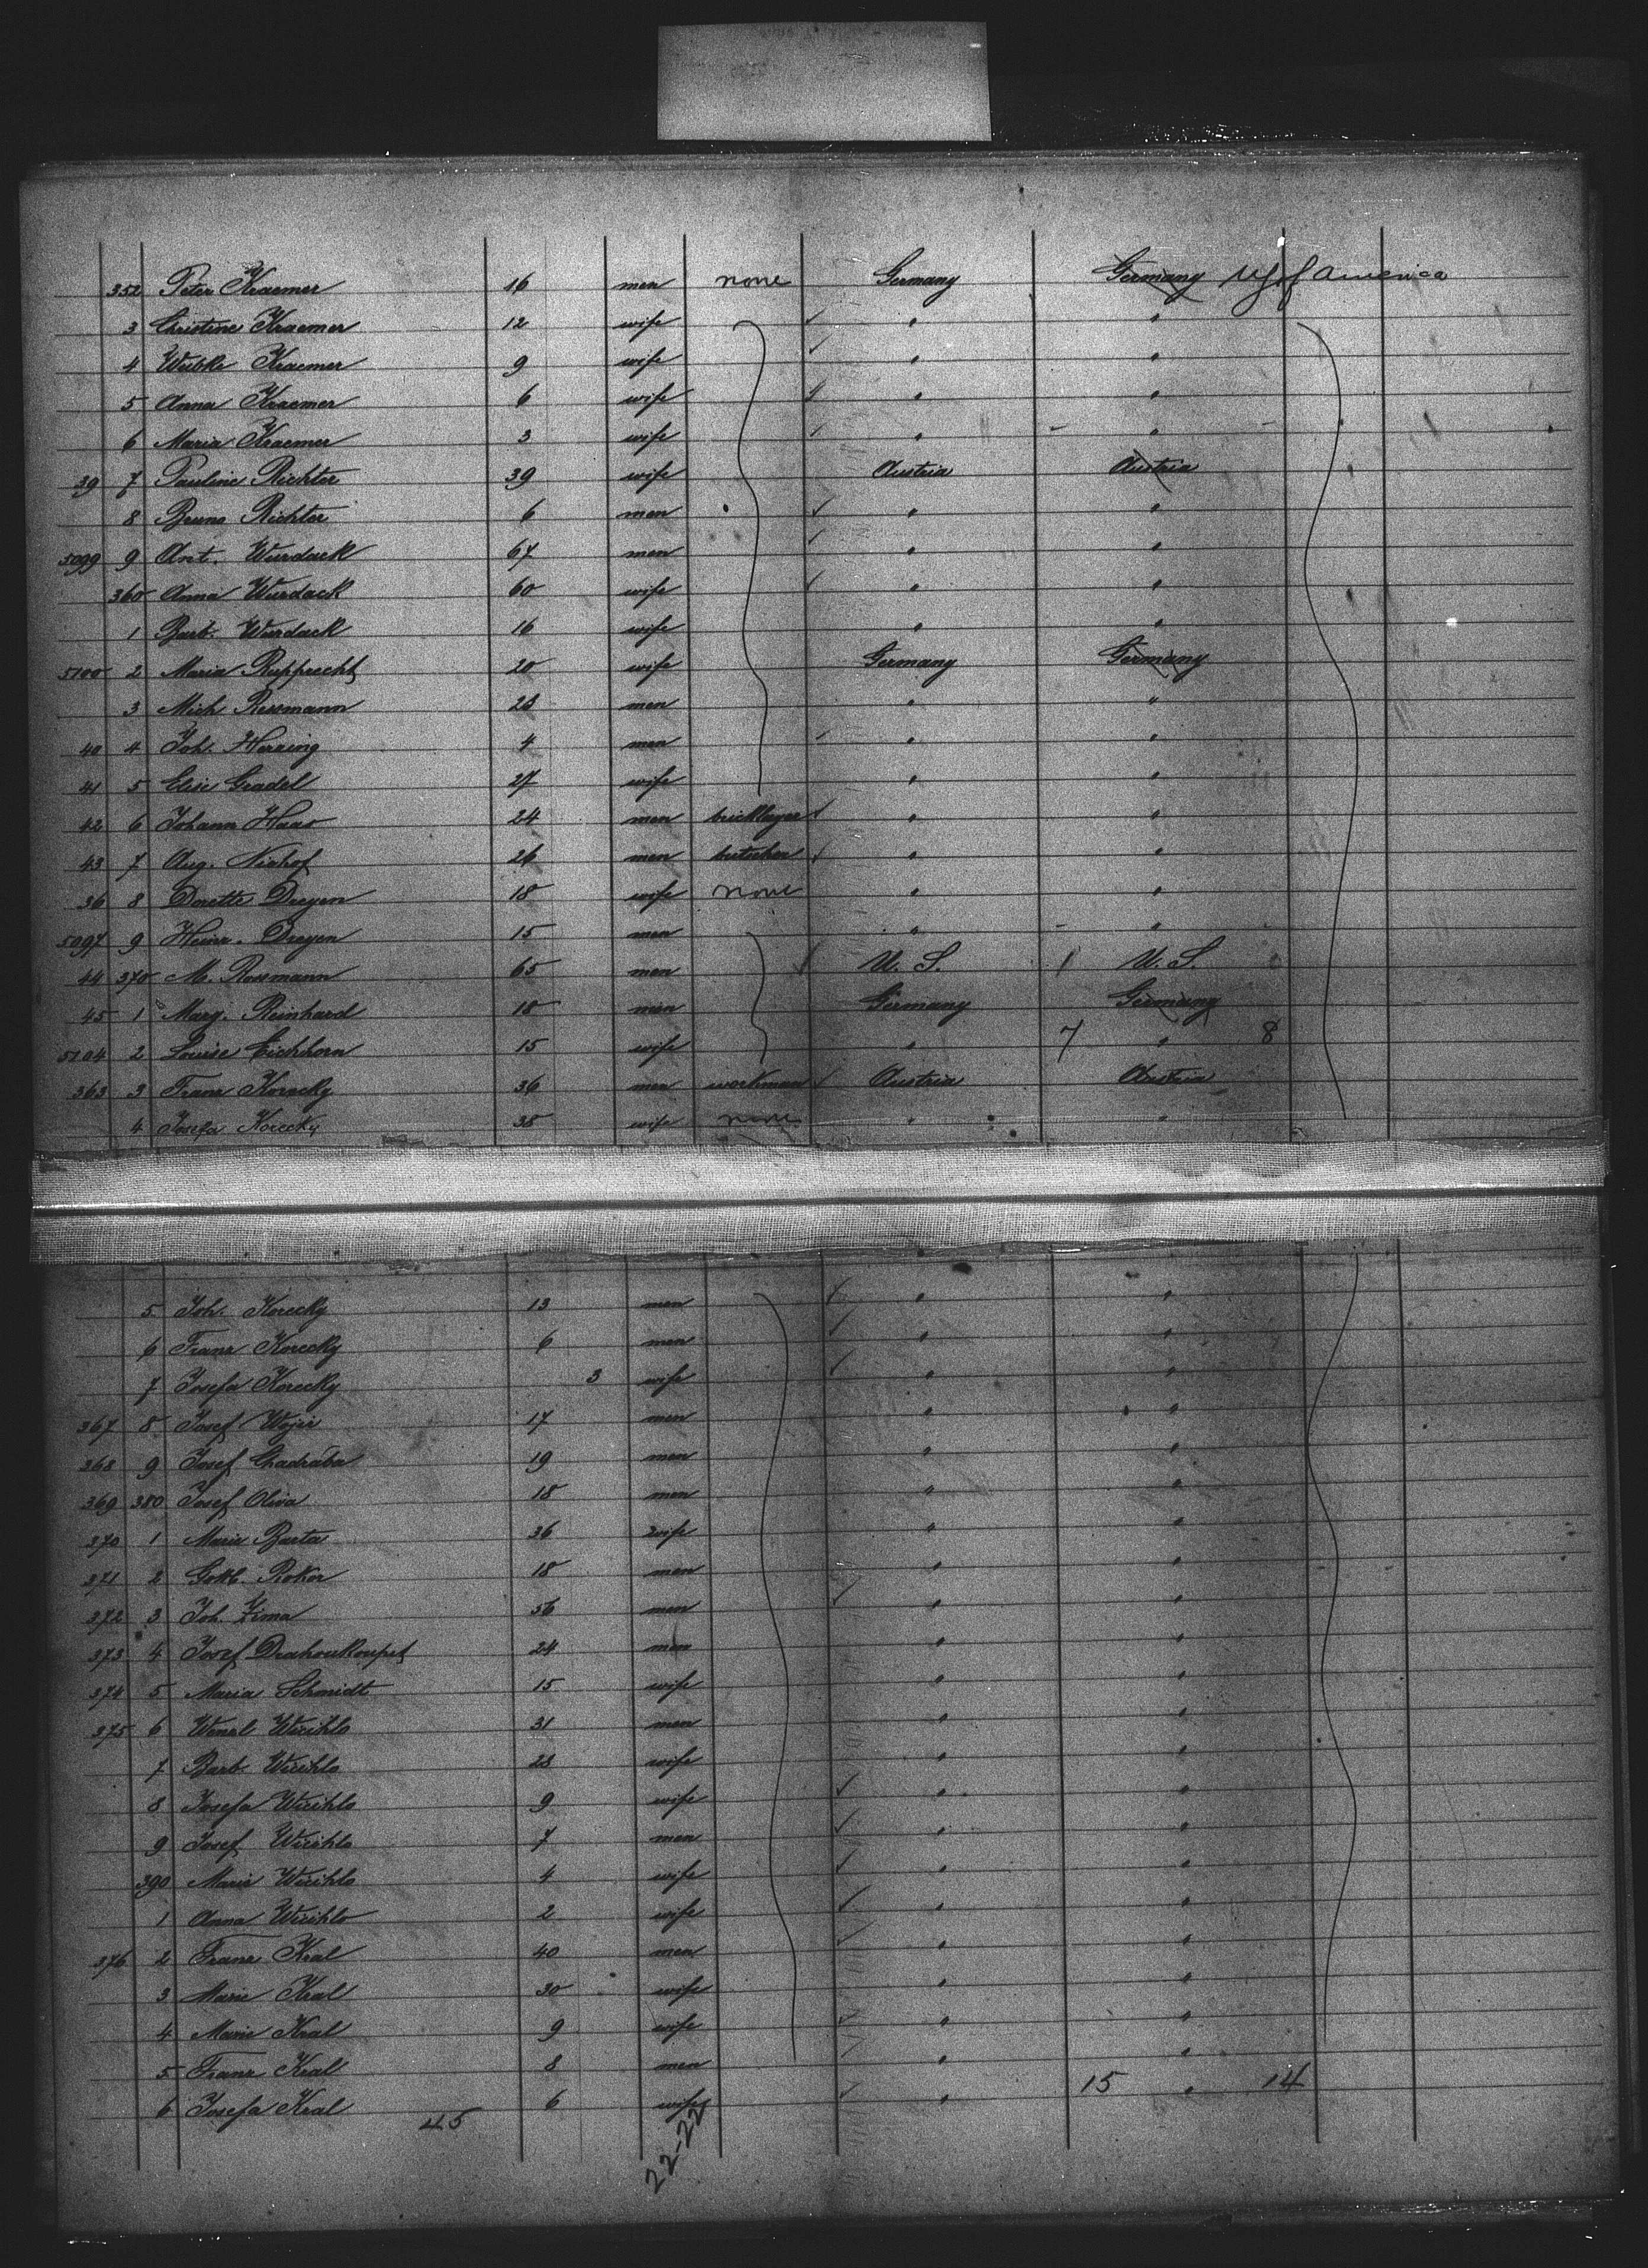 352 Peter Kraemer 16 men none Germany Germany U S of America
3 Christine Kraemer 12 wife " "
4 Wubke Kraemer 9 wife " "
5 Anna Kraemer 6 wife " "
6 Maria Kraemer 3 wife " "
39 7 Pauline Richter 39 wife Austria Austria
8 Bruno Richter 6 men " "
5099 9 Ant. Wurdack 67 men " "
360 Anna Wurdack 60 wife " "
1 Barb. Wurdack 16 wife " "
5100 2 Maria Rupprecht 20 wife Germany Germany
3 Mich 23 men " "
40 4 Joh. Herring 4 men " "
41 5 Elise Gradel 27 wife " "
42 6 Johann Haas 24 men bricklayer " "
43 7 Aug. Niehof 26 men butcher " "
36 8 Dorette Dreyen 18 wife none " "
5097 9 Heinr. Dreyen 15 men " "
44 370 M. Rossmann 65 men U. S. 1 U. S.
45 1 Marg. Reinhard 18 men Germany Germany
5104 2 Louise Eichhorn 15 wife " 7 " 8
363 3 Franz Korecky 36 men workman Austria Austria
4 Josefa Korecky 38 wife none " "
5 Joh. Korecky 13 men " "
6 Franz Korecky 6 men " "
7 Josefa Korecky 3 wife " "
367 8 Josef 17 men " "
368 9 Josef Chadraba 19 men " "
369 380 Josef Oliva 18 men " "
370 1 Marie Barta 36 wife " "
371 2 Gottl. 18 men " "
372 3 Joh. Zima 56 men " "
373 4 Josef Drahoukoupel 24 men " "
374 5 Maria Schmidt 15 wife " "
375 6 Wenzl 31 men " "
7 Barb. 28 wife " "
8 Josefa 9 wife " "
9 Josef 7 men " "
390 Marie 4 wife " "
1 Anna 2 wife " "
376 2 Franz Kral 40 men " "
3 Marie Kral 30 wife " "
4 Marie Kral 9 wife " "
5 Franz Kral 8 men " "
6 Josefa Kral 6 wife " 15 " 14
45
22-22